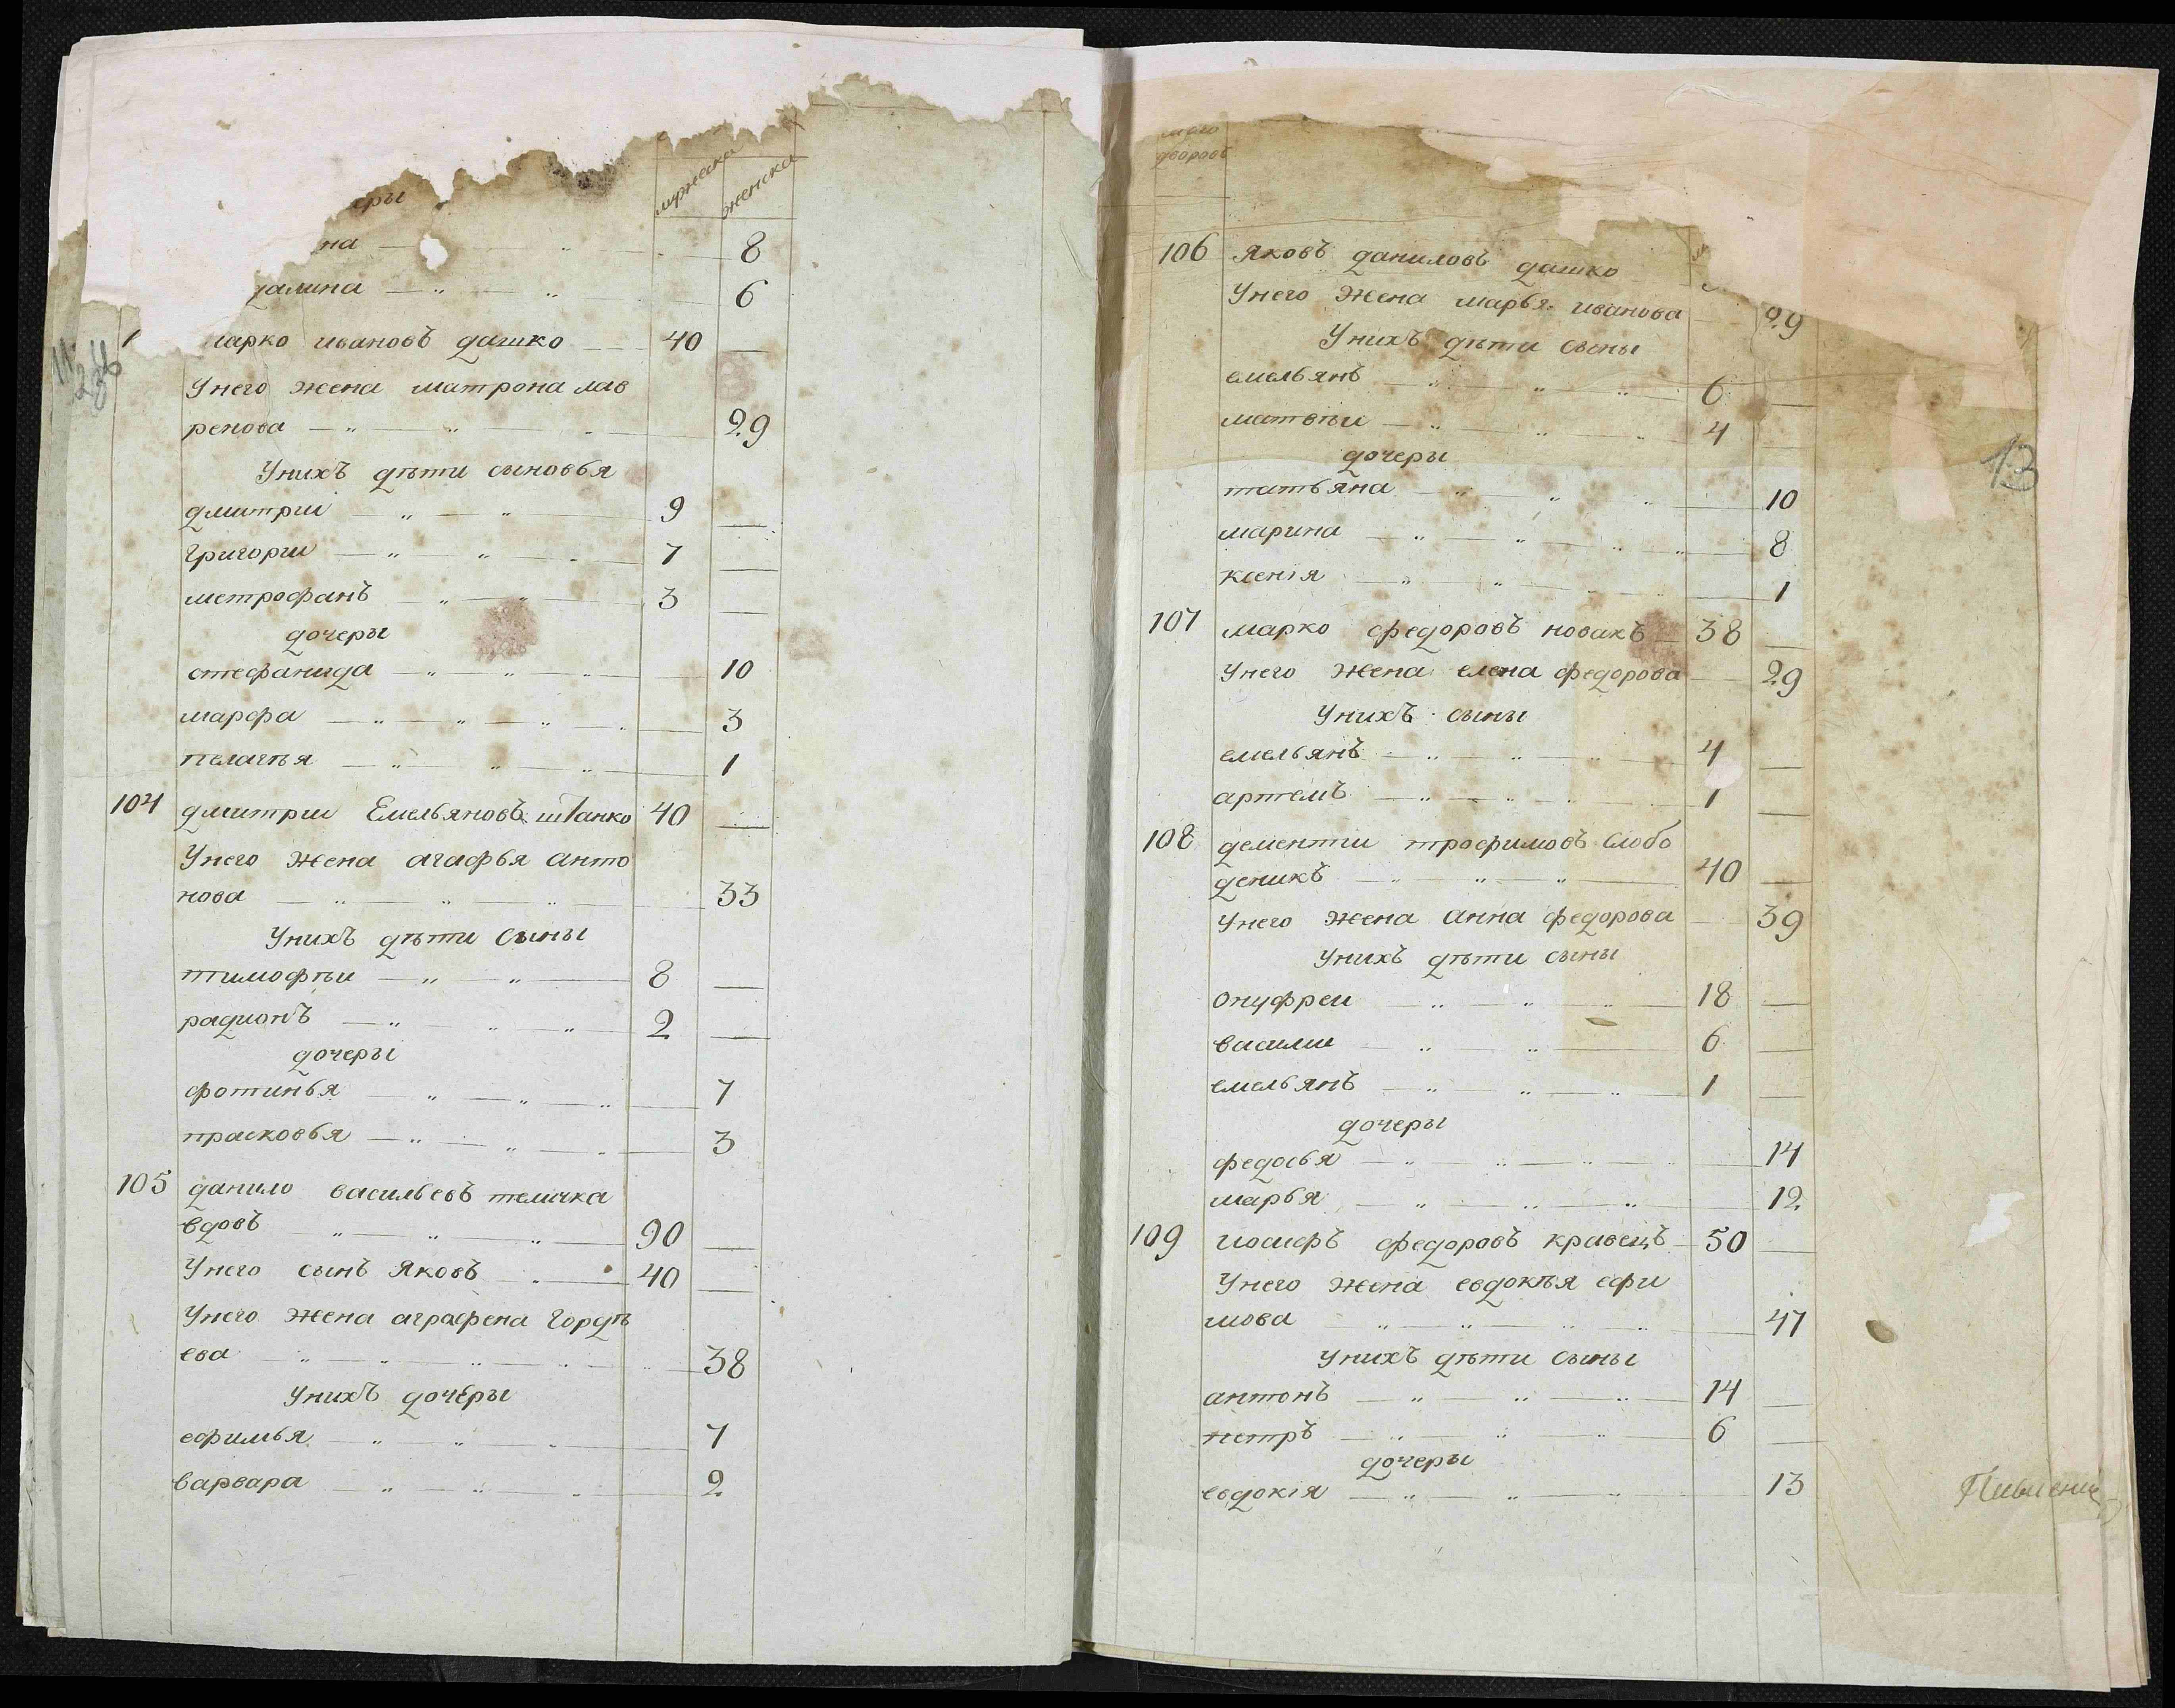 мужеска женска
еры
на 8
далина 6
марко ивановъ дашко 40
Унего жена матрона лав
ренова 29
Унихъ дѣти сыновья
дмитрий 9
Григории 7
метрофанъ 3
дочеры
стефанида 10
марфа 3
пелагѣя 1
104 дмитрии Емельяновъ штанко 40
Унего жена агафья анто
нова 33
Унихъ дѣти сыны
тимофѣи 8
радионъ 2
дочеры
фотинья 7
прасковья 3
105 данило васильевъ теличка
вдовъ 90
Унего сынъ Яковъ 40
Унего жена аграфена Гордѣ
ева 38
Унихъ дочеры
ефимья 7
варвара 2
дворовъ
106 Яковъ даниловъ дашко
Унего жена марья иванова 29
Унихъ дѣти сыны
емельянъ 6
матвѣи 4
дочеры
татьяна 10
марина 8
ксенія 1
13
107 марко федоровъ новакъ 38
Унего жена елена федорова 29
Унихъ сыны
емельянъ 4
артемъ 1
108 дементии трофимовъ слобо
деникъ 40
Унего жена анна федорова 39
Унихъ дѣти сыны
онуфреи 18
василии 6
емельянъ 1
дочеры
федосья 14
марья 12
109 иосифъ федоровъ кравецъ 50
Унего жена евдокѣя ефи
мова 47
Унихъ дѣти сыны
антонъ 14
петръ 6
дочеры
евдокія 13